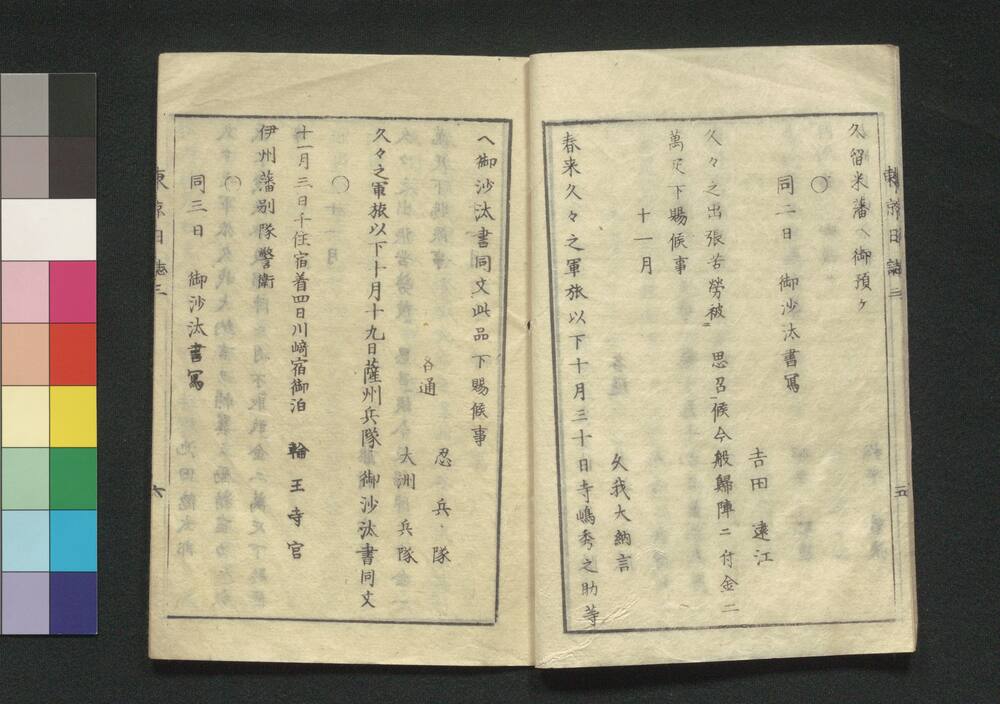 久留米藩ヘ御預ケ
○
同二日　御沙汰書寫
吉田遠江
久々之出張苦勞被　思召候今般歸陣ニ付金二
萬疋下賜候事
十一月
久我大納言
春来久々之軍旅以下十月三十日寺嶋秀之助等
東京日誌三
五
ヘ御沙汰書同文此品下賜候事
忍兵隊
各通
大洲兵隊
久々之軍旅以下十月十九日薩州兵隊御沙汰書同文
○
十一月三日千住宿着四日川﨑宿御泊　輪王寺宮
伊州藩别隊警衛
○
同三日　御沙汰書寫
東京日誌三
六